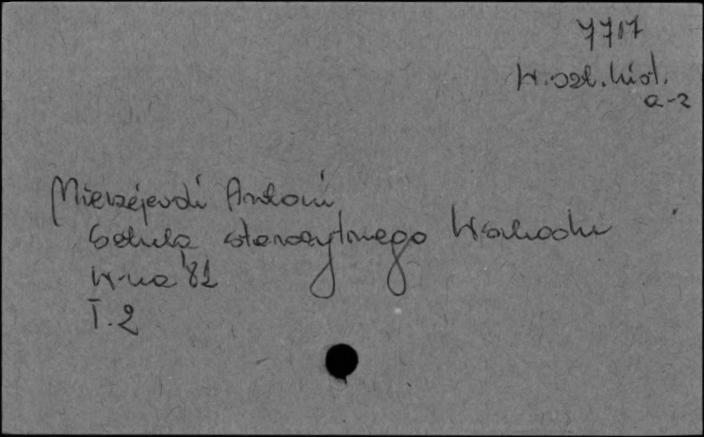 7717
W. szt. hist.
a-z
Mierzejewski Antoni
Sztuka starożytnego Wschodu
W-wa '81
T. 2